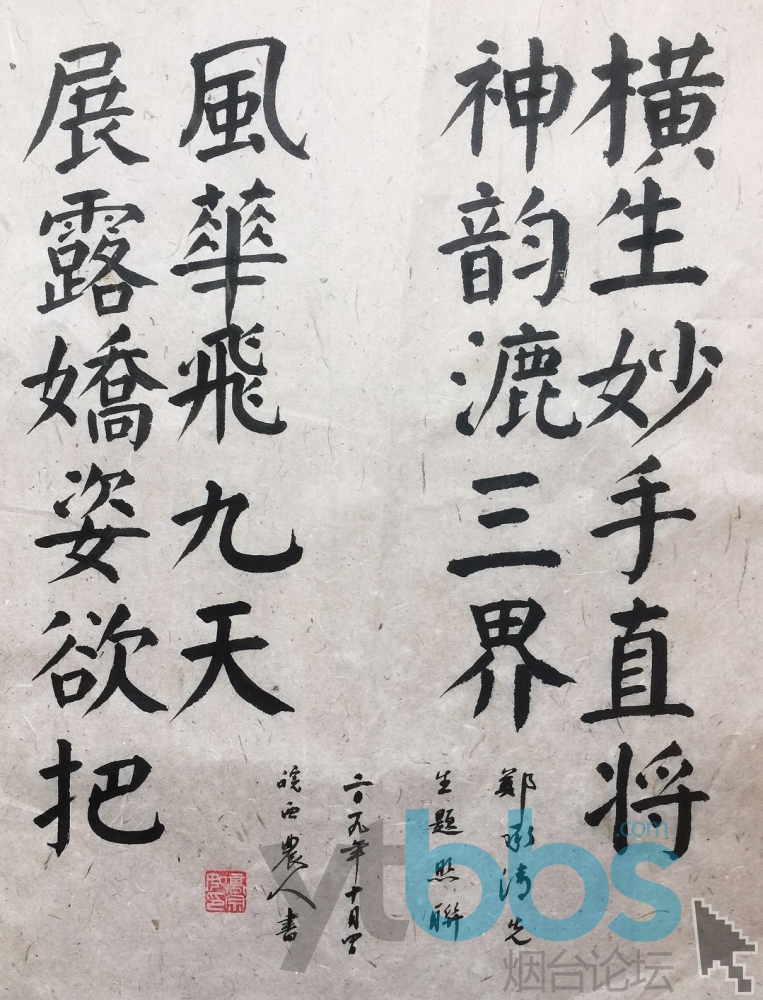 横生妙手直将
神韵漉三界
展露嬌姿欲把
風華飛九天
鄭承清先
生題照聯
二〇一九年十月
皖西農人書
ytbbs.com
烟台论坛